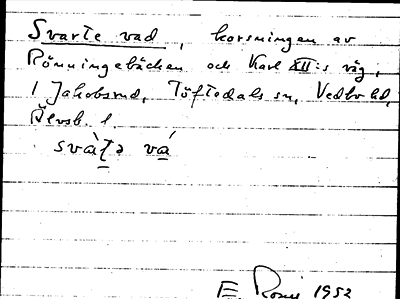 Svarte vad, korsningen av
Rönningebäcken och Karl XII:s väg,
i Jakobsrud, Töftedals sn, Vedbo hd,
Älvsb. l.
svàʈə vá
E. Rosij 1952